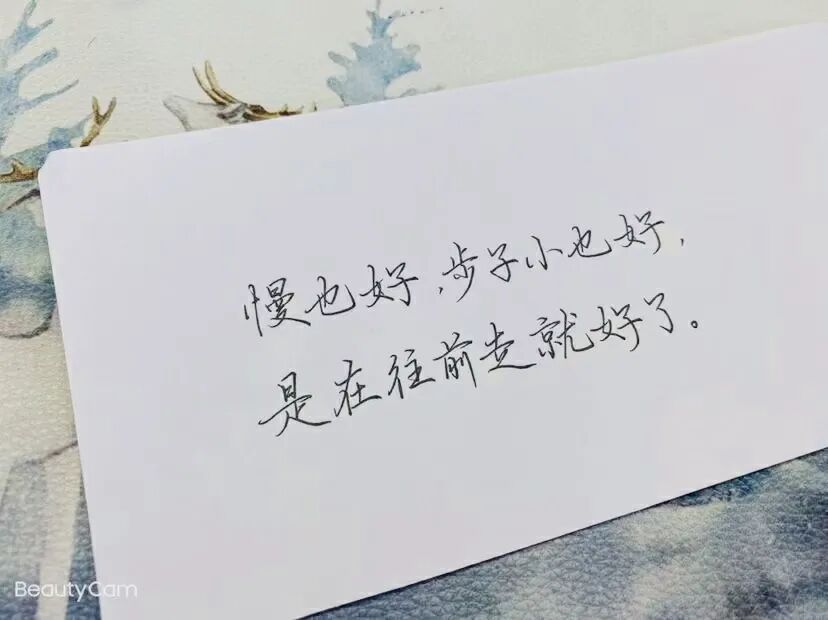 慢也好，步子小也好，
是在往前走就好了。
BeautyCam